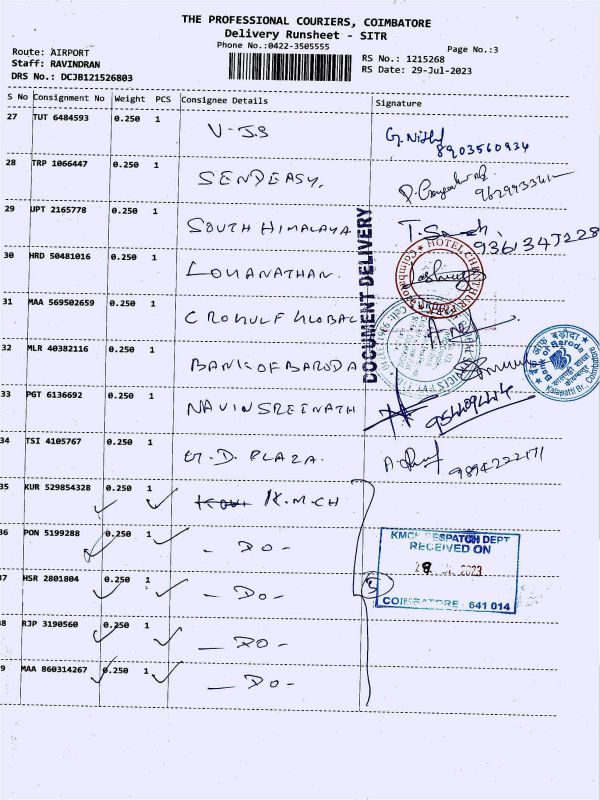 THE PROFESSIONAL COURIERS, COIMBATORE
Delivery Runsheet - SITR
Phone No.:0422-3505555
Page No.:3
Route: AIRPORT
Staff: RAVINDRAN
DRS No.: DCJB121526803
RS No.: 1215268
RS Date: 29-Jul-2023
S No Consignment No Weight PCS Consignee Details Signature
27 TUT 6484593 0.250 1 V-JS
8903560934
28 TRP 1066447 0.250 1 SENDEASY.
29 UPT 2165778 0.250 1 SOUTH HIMALAYA
DOCUMENT DELIVERY
30 HRD 50481016 0.250 1 LOHANATHAN.
HOTEL
Coimbatore
31 MAA 569502659 0.250 1
32 MLR 40382116 0.250 1 BANK OF BARODA
बैंक ऑफ़ बड़ौदा
Bank of Baroda
Kalapatti Br., Coimbatore
33 PGT 6136692 0.250 1 NAVINSREENATH
34 TSI 4105767 0.250 1 G.D. PLAZA.
9894222171
35 KUR 529854328 0.250 1 K.M.CH
36 PON 5199288 0.250 1 - DO -
KMCH DESPATCH DEPT
RECEIVED ON
2023
COIMBATORE - 641 014
37 HSR 2801804 0.250 1 - DO -
5
38 RJP 3190560 0.250 1 - DO -
39 MAA 860314267 0.250 1 - DO -